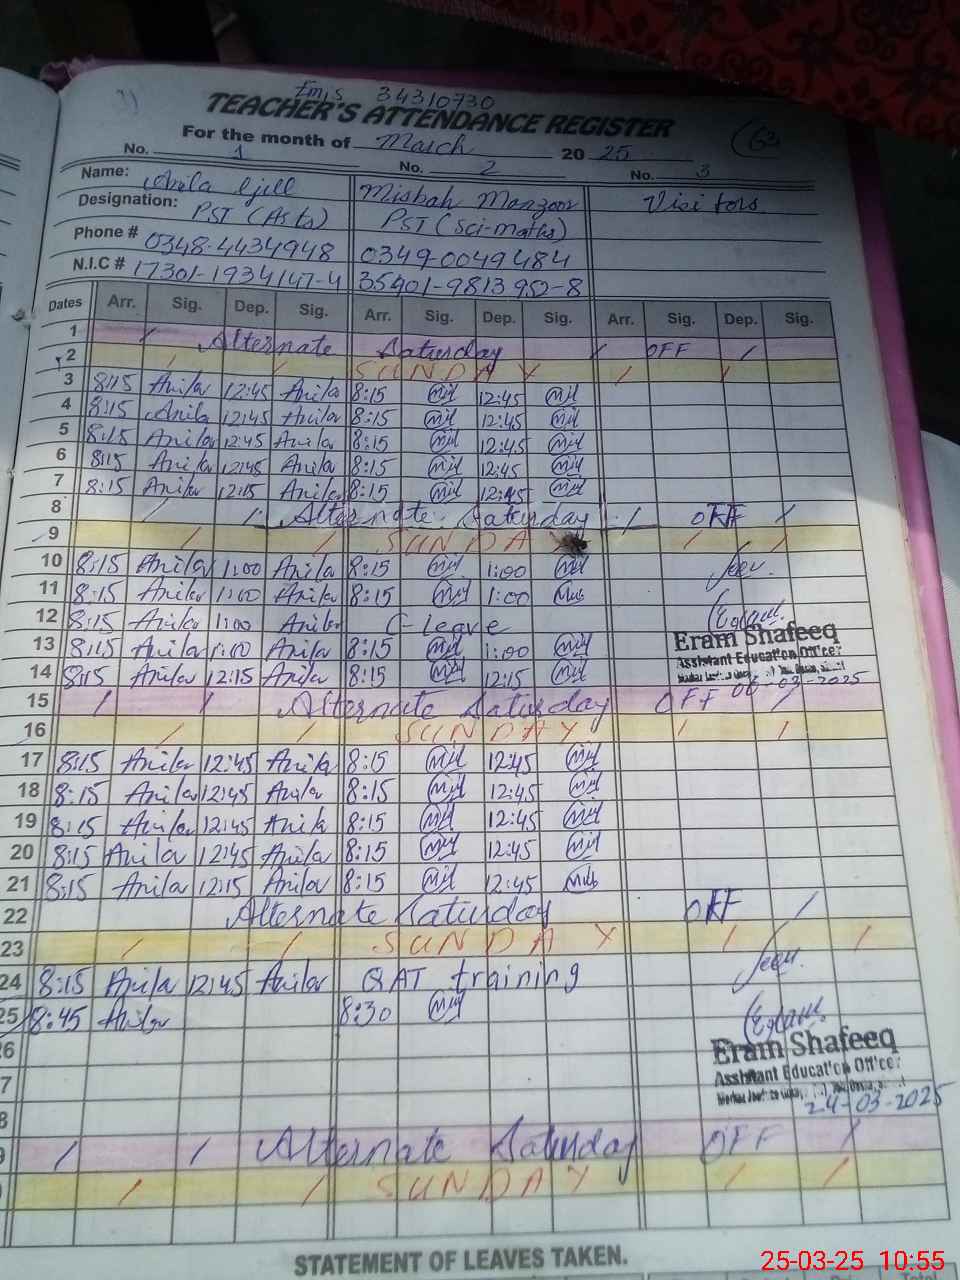 Emis 34310730
TEACHER'S ATTENDANCE REGISTER
63
For the month of March 20 25
No. 1 No. 2 No. 3
Name: Anila Gill Misbah Manzoor Visitors
Designation: PST (Arts) PST (Sci-maths)
Phone # 0348-4434948 0349-0049484
N.I.C # 17301-1934147-4 35401-9813952-8
Dates Arr. Sig. Dep. Sig. Arr. Sig. Dep. Sig. Arr. Sig. Dep. Sig.
1 Alternate Saturday OFF
2 SUNDAY
3 8:15 Anila 12:45 Anila 8:15 12:45
4 8:15 Anila 12:45 Anila 8:15 12:45
5 8:15 Anila 12:45 Anila 8:15 12:45
6 8:15 Anila 12:45 Anila 8:15 12:45
7 8:15 Anila 12:15 Anila 8:15 12:45
8 Alternate Saturday OFF
9 SUNDA
10 8:15 Anila 1:00 Anila 8:15 1:00
11 8:15 Anila 1:00 Anila 8:15 1:00
12 8:15 Anila 1:00 Anila C-leave
13 8:15 Anila 1:00 Anila 8:15 1:00
Eram Shafeeq
Assistant Education Officer
14 8:15 Anila 12:15 Anila 8:15 12:15
-03-2025
15 Alternate Saturday OFF
16 SUNDAY
17 8:15 Anila 12:45 Anila 8:15 12:45
18 8:15 Anila 12:45 Anila 8:15 12:45
19 8:15 Anila 12:45 Anila 8:15 12:45
20 8:15 Anila 12:45 Anila 8:15 12:45
21 8:15 Anila 12:15 Anila 8:15 12:45
22 Alternate Saturday OFF
23 SUNDAY
24 8:15 Anila 12:45 Anila QAT training
25 8:45 Anila 8:30
Eram Shafeeq
Assistant Education Officer
24-03-2025
Alternate Saturday OFF
SUNDAY
STATEMENT OF LEAVES TAKEN.
25-03-25 10:55